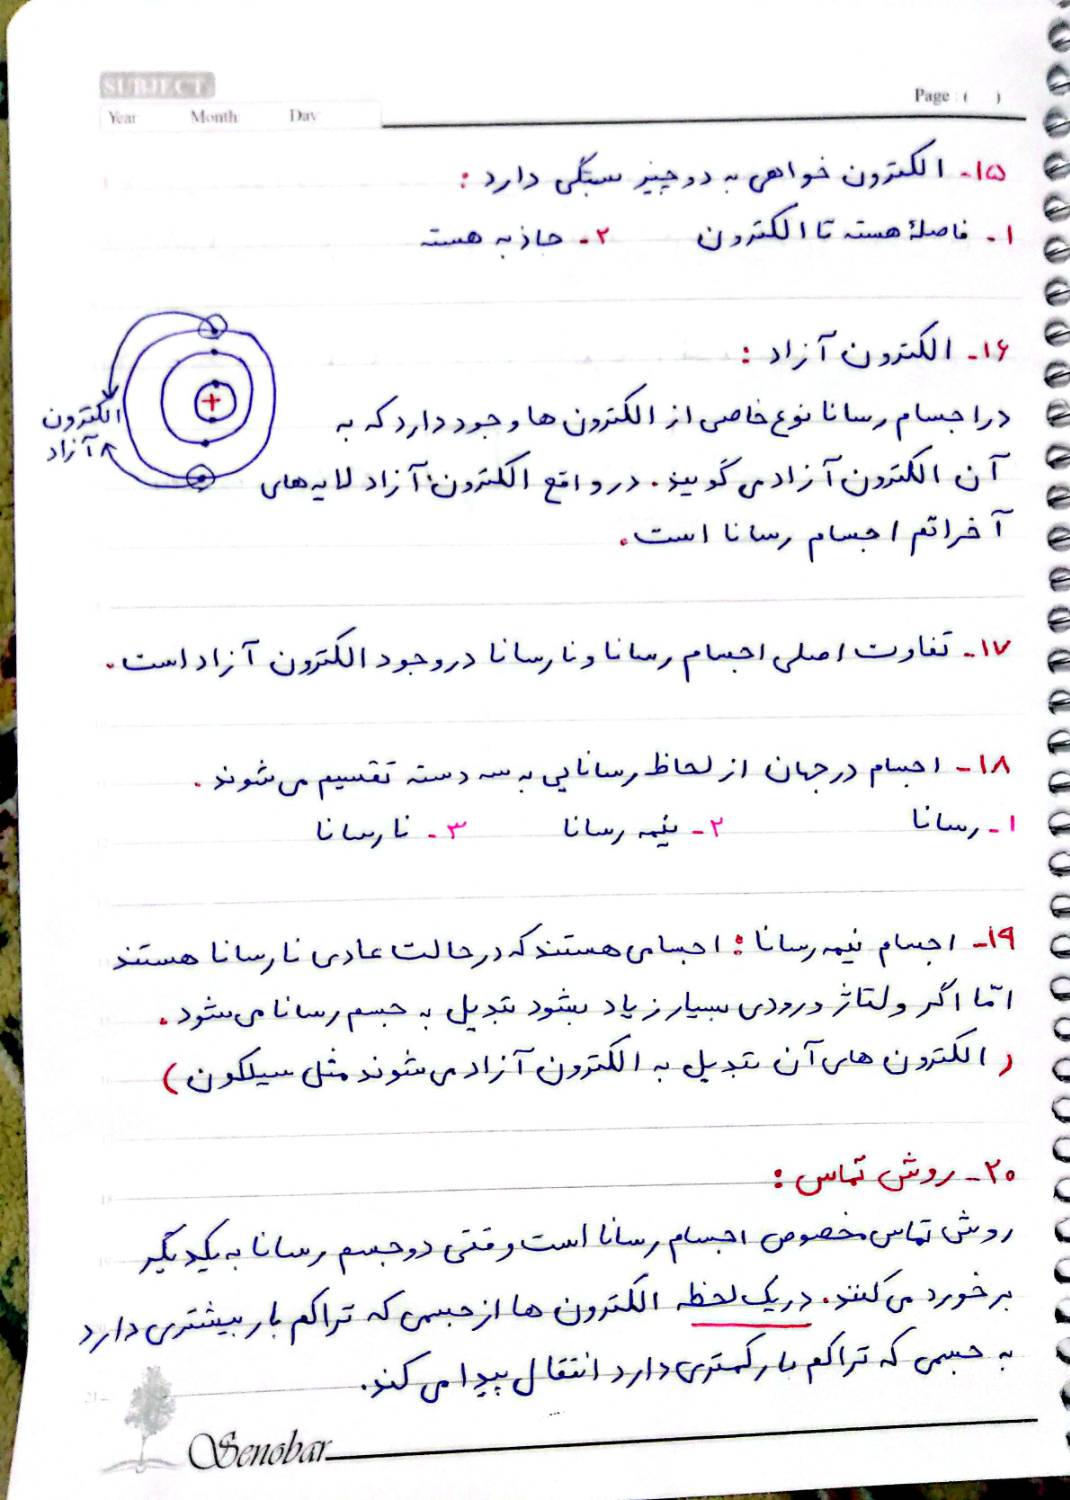 SUBJECT:
Year Month Day
Page : ( )
۱۵- الکترون خواهی به دو چیز بستگی دارد :
۱- فاصلهٔ هسته تا الکترون ۲- جاذبه هسته
۱۶- الکترون آزاد :
در اجسام رسانا نوع خاصی از الکترون ها وجود دارد که به
آن الکترون آزاد می گویند. در واقع الکترون آزاد لایه های
آخر اتم اجسام رسانا است.
+
الکترون
آزاد
۱۷- تفاوت اصلی اجسام رسانا و نارسانا در وجود الکترون آزاد است.
۱۸- اجسام در جهان از لحاظ رسانایی به سه دسته تقسیم می شوند.
۱- رسانا ۲- نیمه رسانا ۳- نارسانا
۱۹- اجسام نیمه رسانا : اجسامی هستند که در حالت عادی نارسانا هستند
امّا اگر ولتاژ ورودی بسیار زیاد بشود تبدیل به جسم رسانا می شود.
( الکترون های آن تبدیل به الکترون آزاد می شوند مثل سیلکون )
۲۰- روش تماس :
روش تماس مخصوص اجسام رسانا است وقتی دو جسم رسانا به یکدیگر
برخورد می کنند. در یک لحظه الکترون ها از جسمی که تراکم بار بیشتری دارد
به جسمی که تراکم بار کمتری دارد انتقال پیدا می کند.
Senobar